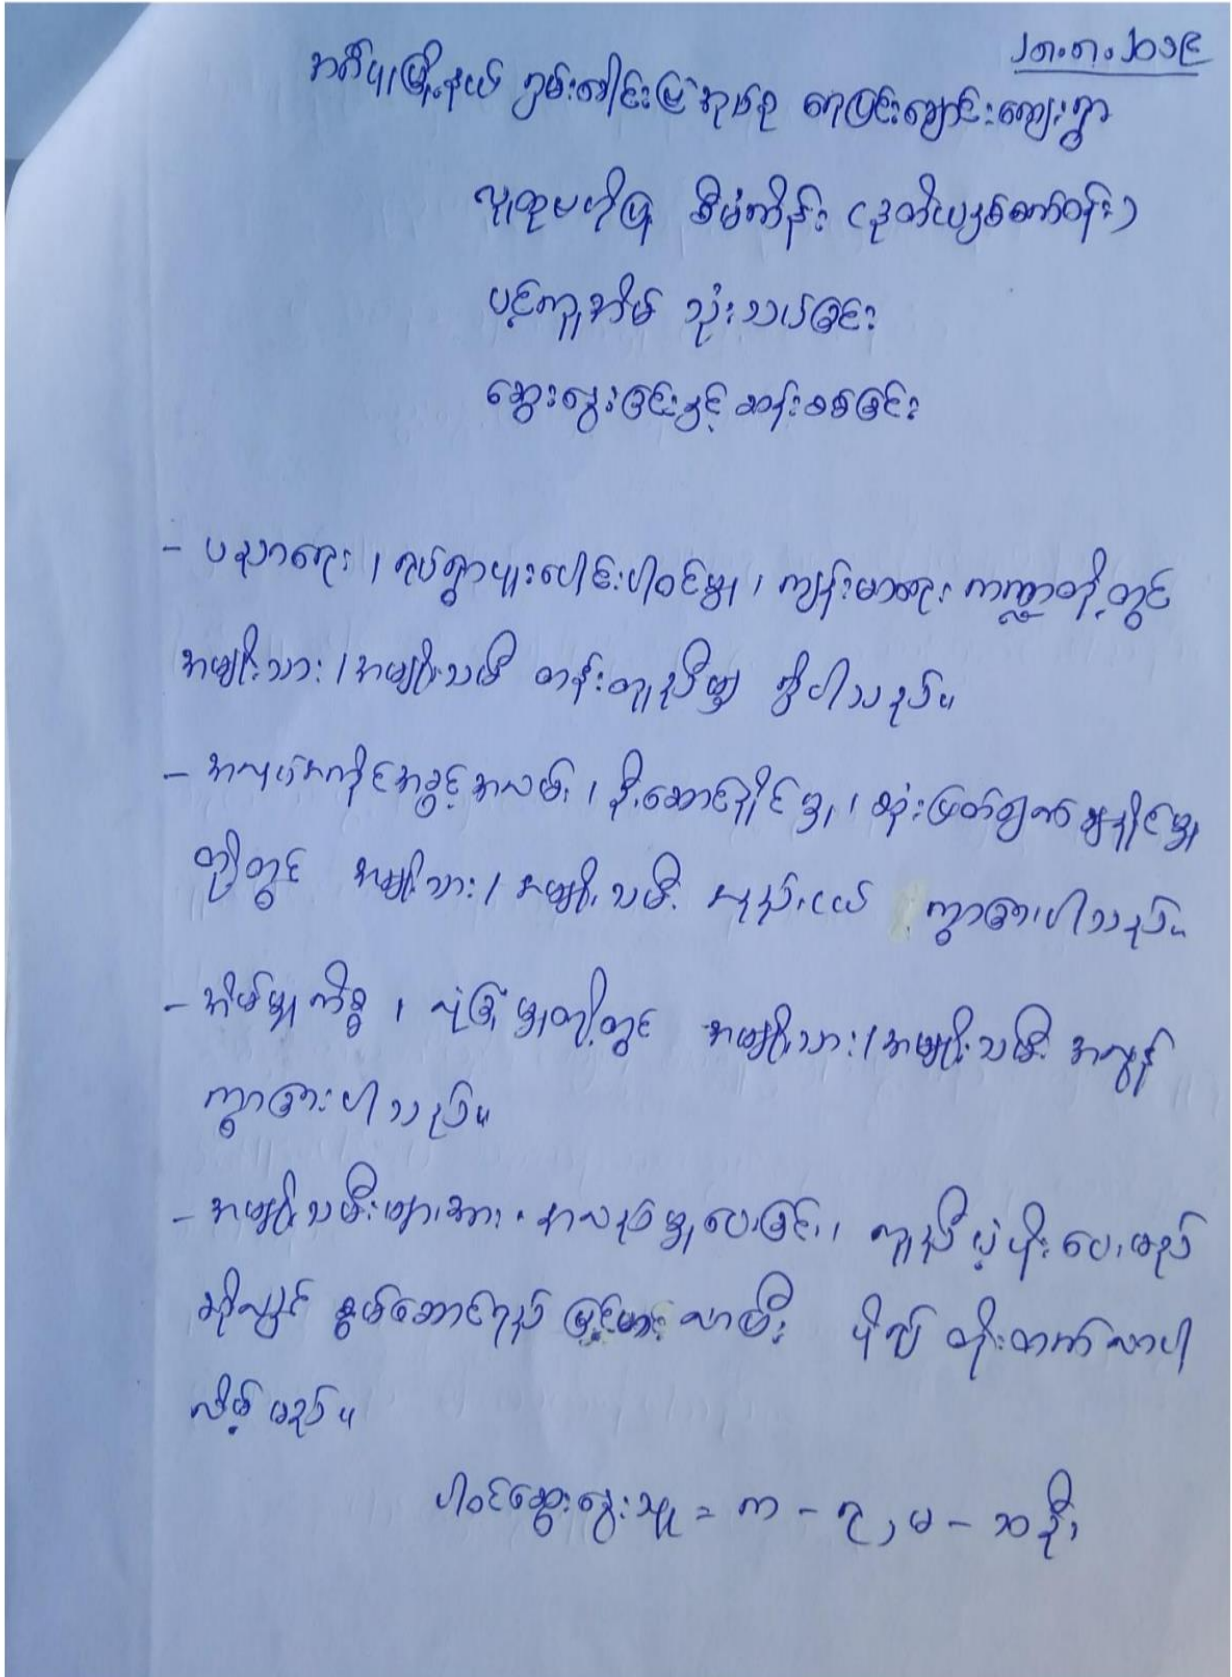 ၂၈.၈.၂၀၁၉
အင်္ဂပူမြို့နယ် ကျွမ်းခေါင်းမြဲအုပ်စု ရေပြင်းချောင်းကျေးရွာ
လူထုဗဟိုပြု စီမံကိန်း (ဒုတိယနှစ်စက်ဝန်း)
ပင့်ကူအိမ် သုံးသပ်ခြင်း
ဆွေးနွေးခြင်းနှင့် ဆန်းစစ်ခြင်း
- ပညာရေး ၊ ရပ်ရွာပူးပေါင်းပါဝင်မှု ၊ ကျန်းမာရေး ကဏ္ဍတို့တွင်
အမျိုးသား / အမျိုးသမီး တန်းတူညီမျှ ရှိပါသည်။
- အလုပ်အကိုင်အခွင့်အလမ်း ၊ ဦးဆောင်နိုင်မှု ၊ ဆုံးဖြတ်ချက်ချနိုင်မှု
တို့တွင် အမျိုးသား / အမျိုးသမီး အနည်းငယ် ကွာခြားပါသည်။
- အိမ်မှုကိစ္စ ၊ လုံခြုံမှုတို့တွင် အမျိုးသား / အမျိုးသမီး အလွန်
ကွာခြားပါသည်။
- အမျိုးသမီးများအား အသိပညာပေးခြင်း ၊ ကူညီပံ့ပိုးပေးမည်
ဆိုလျှင် စွမ်းဆောင်ရည် မြင့်မားလာပြီး ပို၍ တိုးတက်လာပါ
လိမ့်မည်။
ပါဝင်ဆွေးနွေးသူ = က - ၇ ၊ မ - ၁၈ ဦး